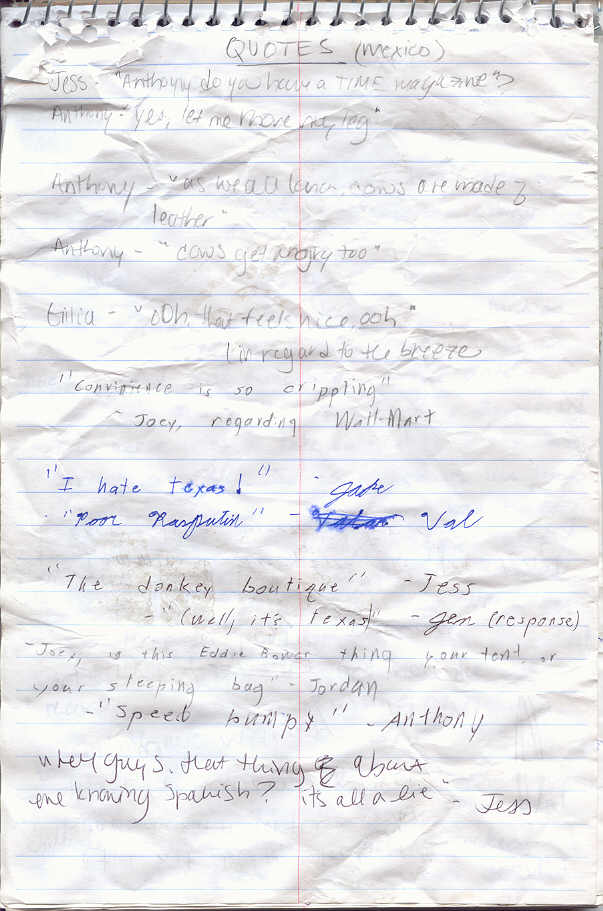 QUOTES (mexico)
Jess - "Anthony do you have a TIME magazine"?
Anthony - "Yes, let me move my leg"
Anthony - "as we all know, cows are made of
leather"
Anthony - "cows get angry too"
- "oOh, that feels nice, ooh"
in regard to the breeze
"Convinience is so crippling"
- Joey, regarding Wall-Mart
"I hate texas!" - Jake
"Poor Rasputin" - Val
"The donkey boutique" - Jess
- "(well, it's Texas)" - Jen (response)
- Joey, is this Eddie Bower thing your tent, or
your sleeping bag" - Jordan
- "Speed bumpx" - Anthony
well guys, that thing about
me knowing Spanish? it's all a lie" - Jess